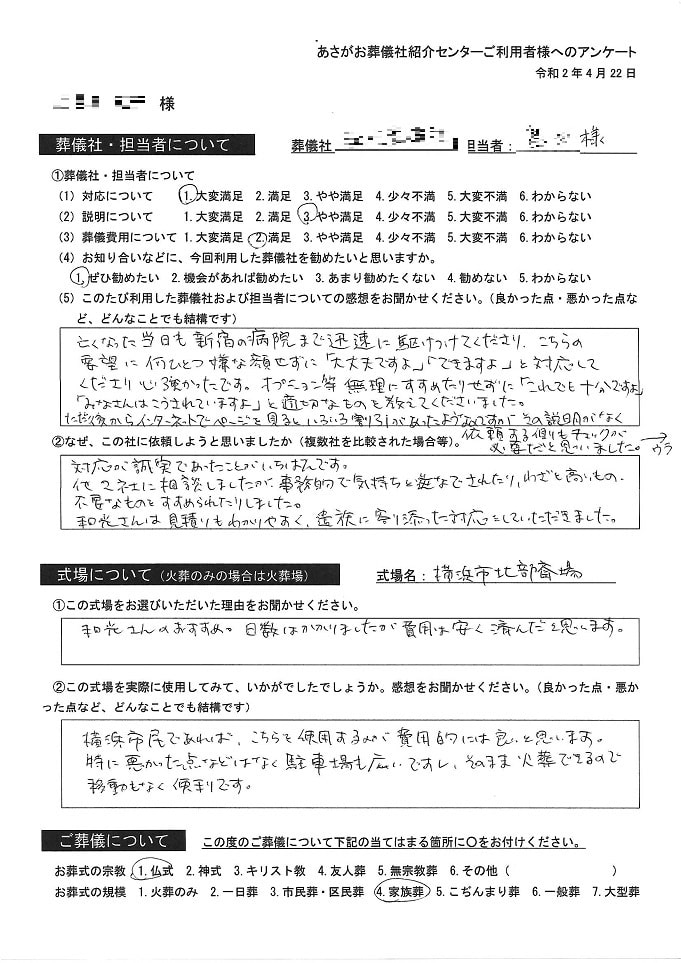 あさがお葬儀社紹介センターご利用者様へのアンケート
令和2年4月22日
様
葬儀社・担当者について 葬儀社 担当者： 様
①葬儀社・担当者について
(1) 対応について 1.大変満足 2.満足 3.やや満足 4.少々不満 5.大変不満 6.わからない
(2) 説明について 1.大変満足 2.満足 3.やや満足 4.少々不満 5.大変不満 6.わからない
(3) 葬儀費用について 1.大変満足 2.満足 3.やや満足 4.少々不満 5.大変不満 6.わからない
(4) お知り合いなどに、今回利用した葬儀社を勧めたいと思いますか。
1.ぜひ勧めたい 2.機会があれば勧めたい 3.あまり勧めたくない 4.勧めない 5.わからない
(5) このたび利用した葬儀社および担当者についての感想をお聞かせください。（良かった点・悪かった点など、
ど、どんなことでも結構です）
亡くなった当日も新宿の病院まで迅速に駆けつけてくださり、こちらの
要望に何ひとつ嫌な顔せずに「大丈夫ですよ」「できますよ」と対応して
くださり心強かったです。オプション等無理にすすめたりせずに「これでも十分ですよ」
「みなさんはこうされていますよ」と適切なものを教えてくださいました。
ただ後からインターネットでページを見るといろいろ割引があったようなですが その説明がなく
依頼する側もチェックが
②なぜ、この社に依頼しようと思いましたか（複数社を比較された場合等）。
必要だと思いました。→ウラ
対応が誠実であったことがいちばんです。
他2社に相談しましたが、事務的で気持ちを逆なでされたり、わざと高いもの、
不要なものをすすめられたりしました。
和光さんは見積りもわかりやすく、遺族に寄り添った対応をしていただきました。
式場について（火葬のみの場合は火葬場） 式場名：横浜市北部斎場
①この式場をお選びいただいた理由をお聞かせください。
和光さんのおすすめ。日数はかかりましたが費用は安く済んだと思います。
②この式場を実際に使用してみて、いかがでしたでしょうか。感想をお聞かせください。（良かった点・悪か
った点など、どんなことでも結構です）
横浜市民であれば、こちらを使用するのが費用的には良いと思います。
特に悪かった点などはなく駐車場も広いですし、そのまま火葬できるので
移動もなく便利です。
ご葬儀について この度のご葬儀について下記の当てはまる箇所に○をお付けください。
お葬式の宗教 1.仏式 2.神式 3.キリスト教 4.友人葬 5.無宗教葬 6.その他（ ）
お葬式の規模 1.火葬のみ 2.一日葬 3.市民葬・区民葬 4.家族葬 5.こぢんまり葬 6.一般葬 7.大型葬